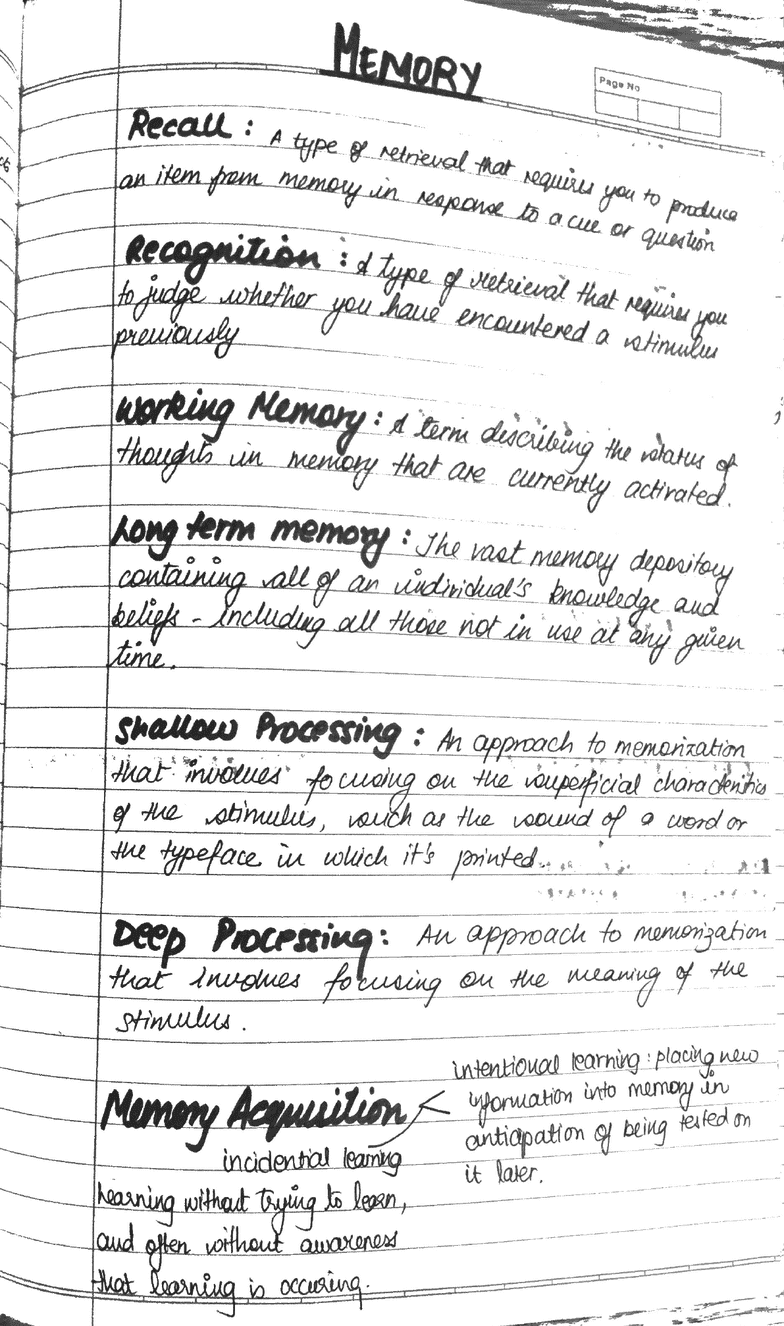 MEMORY
Page No
Recall : A type of retrieval that requires you to produce
an item from memory in response to a cue or question
Recognition : A type of retrieval that requires you
to judge whether you have encountered a stimulus
previously
Working Memory : A term describing the status of
thoughts in memory that are currently activated.
Long term memory : The vast memory depository
containing all of an individual's knowledge and
beliefs - including all those not in use at any given
time.
Shallow Processing : An approach to memorization
that involves focusing on the superficial characteristics
of the stimulus, such as the sound of a word or
the typeface in which it's printed.
Deep Processing : An approach to memorization
that involves focusing on the meaning of the
stimulus.
Memory Acquisition
intentional learning : placing new
information into memory in
anticipation of being tested on
it later.
incidential learning
Learning without trying to learn,
and often without awareness
that learning is occuring.